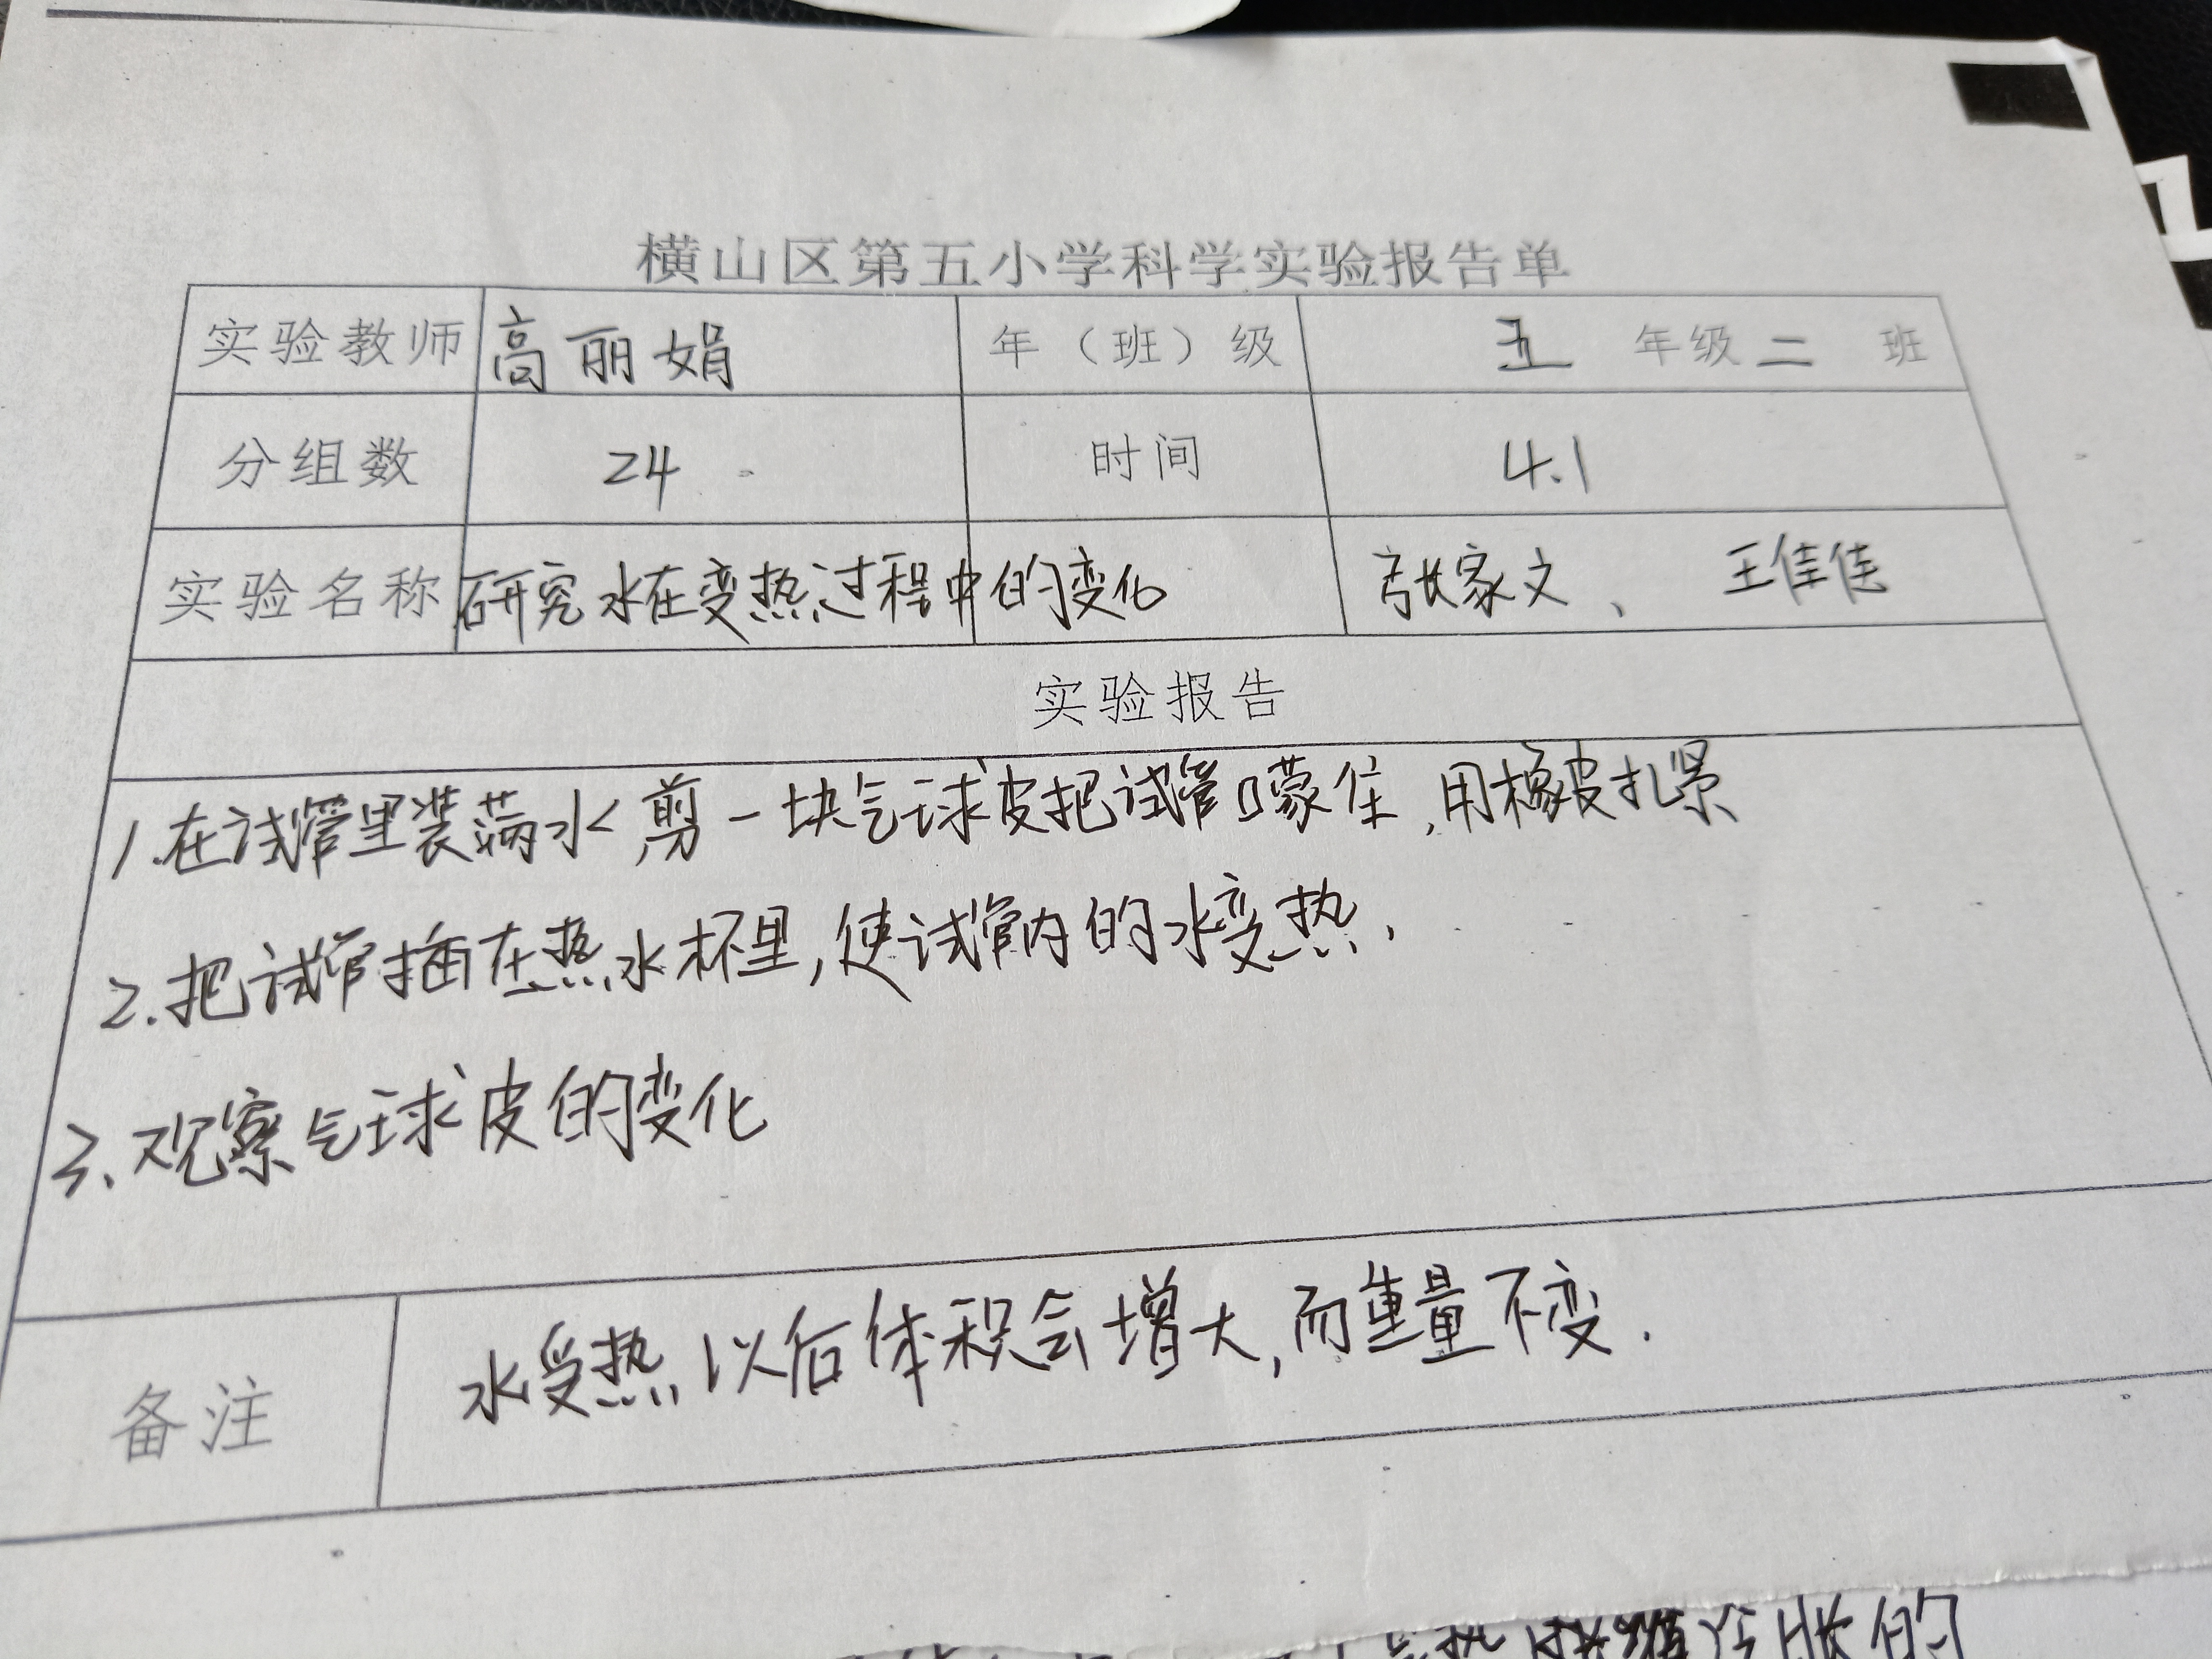 横山区第五小学科学实验报告单
实验教师 高丽娟 年（班）级 五 年级 二 班
分组数 24 时间 4.1
实验名称 研究水在变热过程中的变化 张家文、王佳佳
实验报告
1.在试管里装满水,剪一块气球皮把试管口蒙住,用橡皮扎紧
2.把试管插在热水杯里,使试管内的水变热.
3.观察气球皮的变化
备注 水受热以后体积会增大,而重量不变.
冷胀的